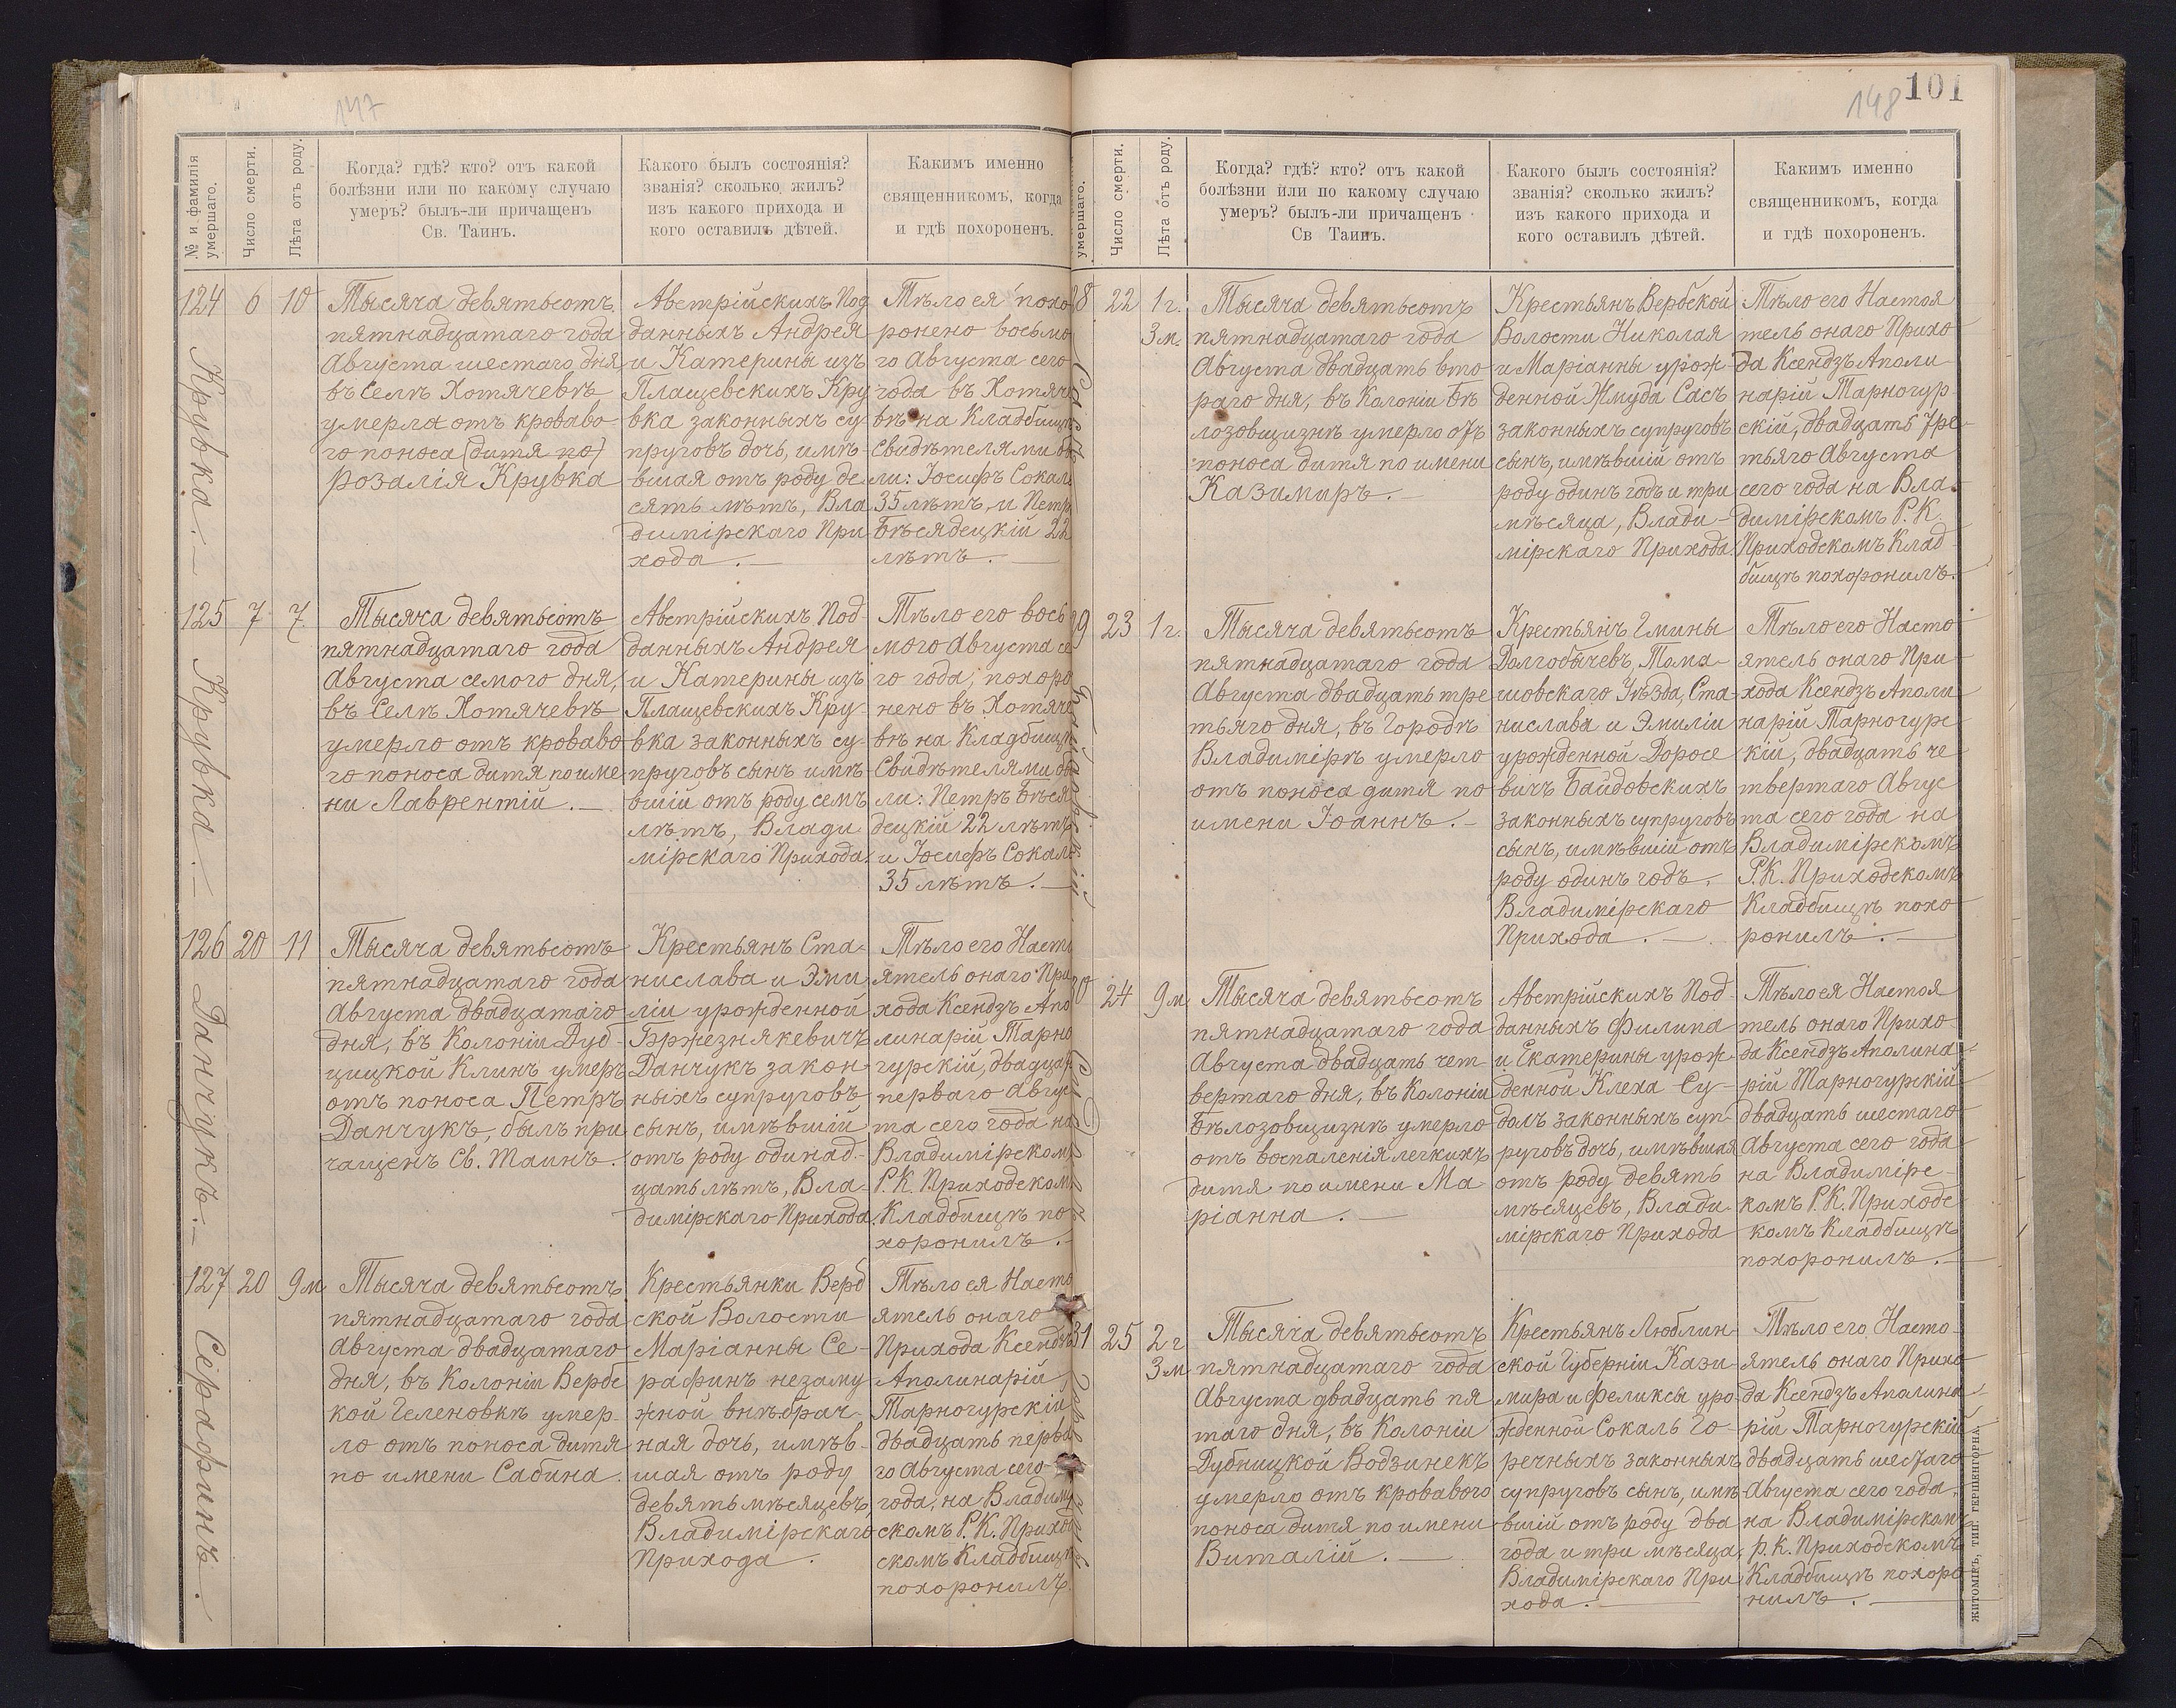 147
№ и фамилія
умершаго.
Число смерти.
Лѣта отъ роду.
Когда? гдѣ? кто? отъ какой
болѣзни или по какому случаю
умеръ? былъ-ли причащенъ
Св. Таинъ.
Какого былъ состоянія?
званія? сколько жилъ?
изъ какого прихода и
кого оставилъ дѣтей.
Какимъ именно
священникомъ, когда
и гдѣ похороненъ.
124
Крувка.
6
10
Тысяча девятьсотъ
пятнадцатаго года
Августа шестаго дня
въ Селѣ Хотячевѣ
умерла отъ кроваво-
го поноса (дитя по)
Розалія Крувка
Австрійскихъ Под
данныхъ Андрея
и Катерины изъ
Плащевскихъ Кру
вка законныхъ су-
пруговъ дочь, имѣ-
вшая отъ роду де
сять лѣтъ, Вла
димірскаго При
хода.
Тѣло ея похо
ронено восьмо
го Августа сего
года въ Хотяче
вѣ на Кладбищѣ
Свидѣтелями бы
ли: Іосифъ Сокаль
35 лѣтъ, и Петръ
Бѣсядецкій 22
лѣтъ.
125
Крувка.
7
7
Тысяча девятьсотъ
пятнадцатаго года
Августа семого дня,
въ Селѣ Хотячевѣ
умерло отъ кроваво
го поноса дитя по име
ни Лаврентій.
Австрійскихъ Под-
данныхъ Андрея
и Катерины изъ
Плащевскихъ Кру-
вка законныхъ су-
пруговъ сынъ имѣ-
вшій отъ роду семъ
лѣтъ, Влади
мірскаго Прихода.
Тѣло его вось
мого Августа се
го года, похоро
нено въ Хотяче
вѣ на Кладбищѣ
Свидѣтелями бы
ли: Петръ Бѣся
децкій 22 лѣтъ
и Іосифъ Сокаль
35 лѣтъ.
126
Данчукъ.
20
11
Тысяча девятьсотъ
пятнадцатаго года
Августа двадцатаго
дня, въ Колоніи Дуб-
ницкой Клинъ умеръ
отъ поноса Петръ
Данчукъ, былъ при
чащенъ Св. Таинъ.
Крестьянъ Ста-
нислава и Эми
ліи урожденной
Бржезнякевичъ
Данчукъ закон-
ныхъ супруговъ
сынъ, имѣвшій
отъ роду одинад-
цать лѣтъ, Вла-
димірскаго Прихода.
Тѣло его Насто
ятель онаго При
хода Ксендзъ Апо
линарій Тарно
гурскій, двадцать
перваго Авгус
та сего года на
Владимірскомъ
Р.К. Приходскомъ
Кладбищѣ по
хоронилъ.
127
Серафинъ.
20
9м
Тысяча девятьсотъ
пятнадцатаго года
Августа двадцатаго
дня, въ Колоніи Вербс
кой Геленовкѣ умер-
ло отъ поноса дитя
по имени Сабина.
Крестьянки Верб
ской Волости
Маріанны Се-
рафинъ незаму
жной внѣбрач-
ная дочь, имѣв-
шая отъ роду
девять мѣсяцевъ,
Владимірскаго
Прихода.
Тѣло ея Насто
ятель онаго
Прихода Ксендзъ
Аполинарій
Тарногурскій
двадцать перва
го Августа сего
года, на Владимір
скомъ Р.К. Приход
скомъ Кладбищѣ
похоронилъ.
148
101
умершаго.
Число смерти.
Лѣта отъ роду.
Когда? гдѣ? кто? отъ какой
болѣзни или по какому случаю
умеръ? былъ-ли причащенъ
Св Таинъ.
Какого былъ состоянія?
званія? сколько жилъ?
изъ какого прихода и
кого оставилъ дѣтей.
Какимъ именно
священникомъ, когда
и гдѣ похороненъ.
8
22
1 г.
3 м.
Тысяча девятьсотъ
пятнадцатаго года
Августа двадцать вто-
раго дня, въ Колоніи Бѣ
лозовщизнѣ умерло отъ
поноса дитя по имени
Казимиръ.
Крестьянъ Вербской
Волости Николая
и Маріанны урож-
денной Жмуда Сасъ
законныхъ супруговъ
сынъ, имѣвшій отъ
роду одинъ годъ и три
мѣсяца, Влади-
мірскаго Прихода.
Тѣло его Настоя
тель онаго Прихо
да Ксендзъ Аполи
нарій Тарногур-
скій, двадцать тре-
тьяго Августа
сего года на Вла-
димірскомъ Р.К.
Приходскомъ Клад-
бищѣ похоронилъ.
9
23
1 г.
Тысяча девятьсотъ
пятнадцатаго года
Августа двадцать тре
тьяго дня, въ Городѣ
Владимірѣ умерло
отъ поноса дитя по
имени Іоаннъ.
Крестьянъ Гмины
Долгобычевъ, Тома-
шовскаго Уѣзда, Ста-
нислава и Эмиліи
урожденной Доросе
вичъ Байдовскихъ
законныхъ супруговъ
сынъ, имѣвшій отъ
роду одинъ годъ,
Владимірскаго
Прихода.
Тѣло его Насто
ятель онаго При-
хода Ксендзъ Аполи
нарій Тарногурс
кій, двадцать че
твертаго Авгус
та сего года на
Владимірскомъ
Р.К. Приходскомъ
Кладбищѣ похо
ронилъ.
0
24
9м
Тысяча девятьсотъ
пятнадцатаго года
Августа двадцать чет-
вертаго дня, въ Колоніи
Бѣлозовщизнѣ умерло
отъ воспаленія легкихъ
дитя по имени Ма
ріанна.
Австрійскихъ Под-
данныхъ Филипа
и Екатерины урож-
денной Клеха Су-
долъ законныхъ суп-
руговъ дочь, имѣвшая
отъ роду девять
мѣсяцевъ, Влади-
мірскаго Прихода
Тѣло ея Настоя
тель онаго Прихо-
да Ксендзъ Аполина-
рій Тарногурскій
двадцать шестаго
Августа сего года
на Владимірс-
комъ Р.К. Приходс
комъ Кладбищѣ
похоронилъ.
31
25
2 г
3 м
Тысяча девятьсотъ
пятнадцатаго года
Августа двадцать пя
таго дня, въ Колоніи
Дубницкой Водзинекъ
умерло отъ кровавого
поноса дитя по имени
Виталій.
Крестьянъ Люблин-
ской Губерніи Кази-
мира и Феликсы уро-
жденной Сокаль Го-
речныхъ законныхъ
супруговъ сынъ, имѣ-
вшій отъ роду два
года и три мѣсяца,
Владимірскаго При
хода.
Тѣло его Насто-
ятель онаго Прихо
да Ксендзъ Аполина-
рій Тарногурскій
двадцать шестаго
Августа сего года,
на Владимірскомъ
Р.К. Приходскомъ
Кладбищѣ похоро
нилъ.
ЖИТОМІРЪ, ТИП. ГЕРШЕНГОРНА.